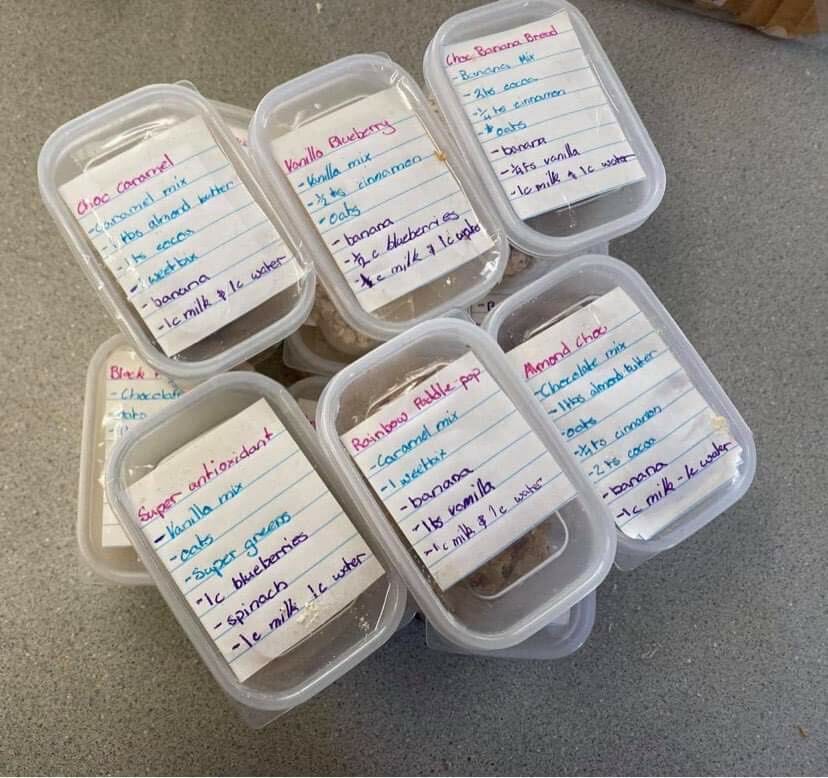 Choc Caramel
- Caramel mix
- 1 tbs almond butter
- 1 ts cocoa
- 1 weetbix
- banana
- 1c milk & 1c water
Vanilla Blueberry
- Vanilla mix
- 1/2 ts cinnamon
- oats
- banana
- 1/2 c blueberries
- 1c milk & 1c water
Choc Banana Bread
- Banana Mix
- 2ts cocoa
- 1/4 ts cinnamon
- oats
- banana
- 1/4 ts vanilla
- 1c milk & 1c water
Black
- Chocolate
- oats
Super antioxidant
- Vanilla mix
- oats
- Super greens
- 1c blueberries
- spinach
- 1c milk 1c water
Rainbow Paddle-pop
- Caramel mix
- 1 weetbix
- banana
- 1ts vanilla
- 1c milk & 1c water
Almond choc
- Chocolate mix
- 1tbs almond butter
- oats
- 1/2 ts cinnamon
- 2 ts cocoa
- banana
- 1c milk - 1c water